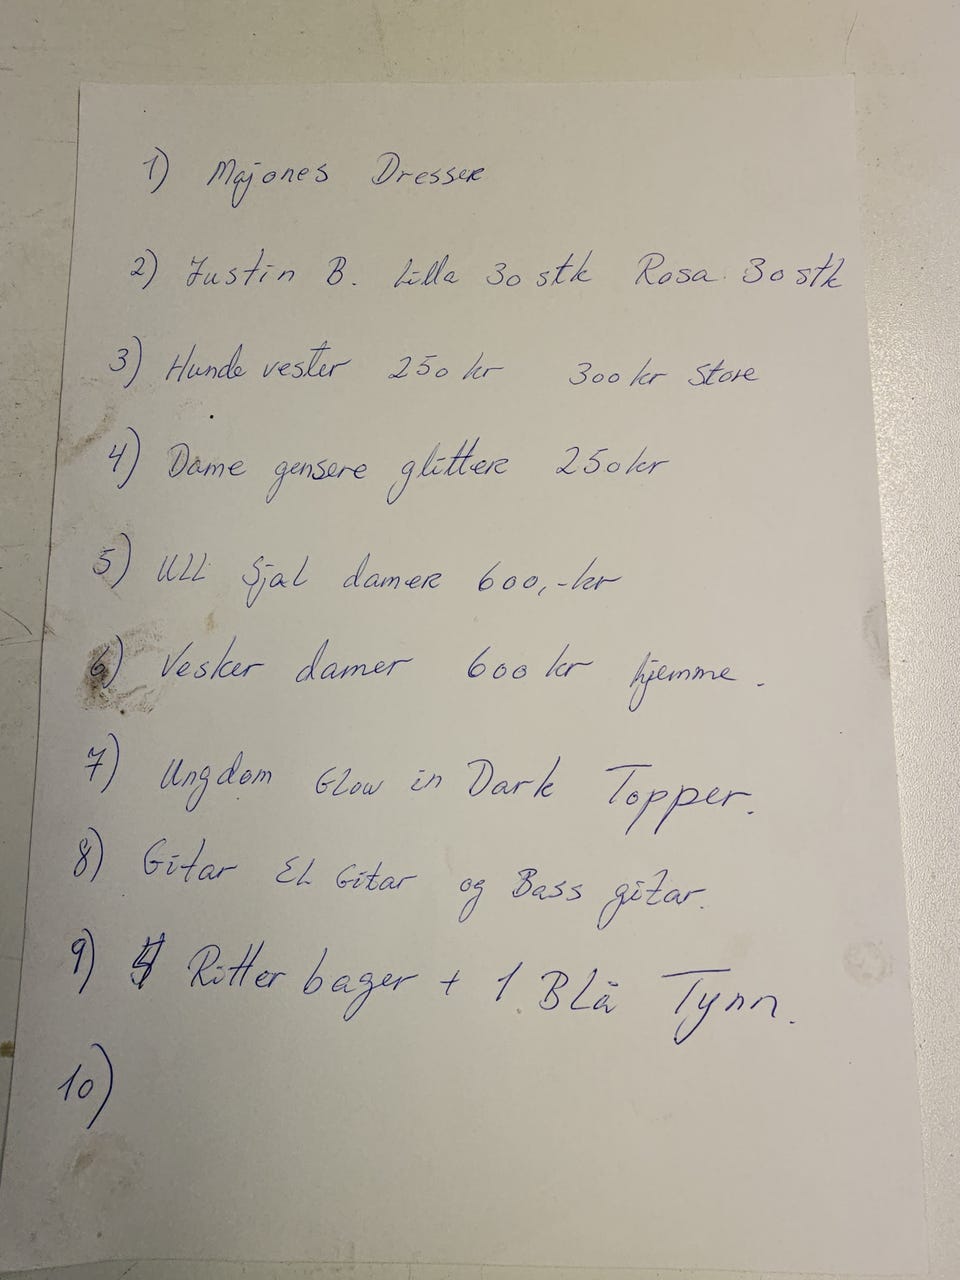 1) Majones Dresser
2) Justin B. Lilla 30 stk Rosa 30 stk
3) Hunde vester 250 kr 300 kr Store
4) Dame gensere glitter 250 kr
5) Ull Sjal damer 600,-kr
6) Vesker damer 600 kr hjemme.
7) Ungdom Glow in Dark Topper.
8) Gitar EL Gitar og Bass gitar.
9) Ritter bager + 1 Blå Tynn.
10)